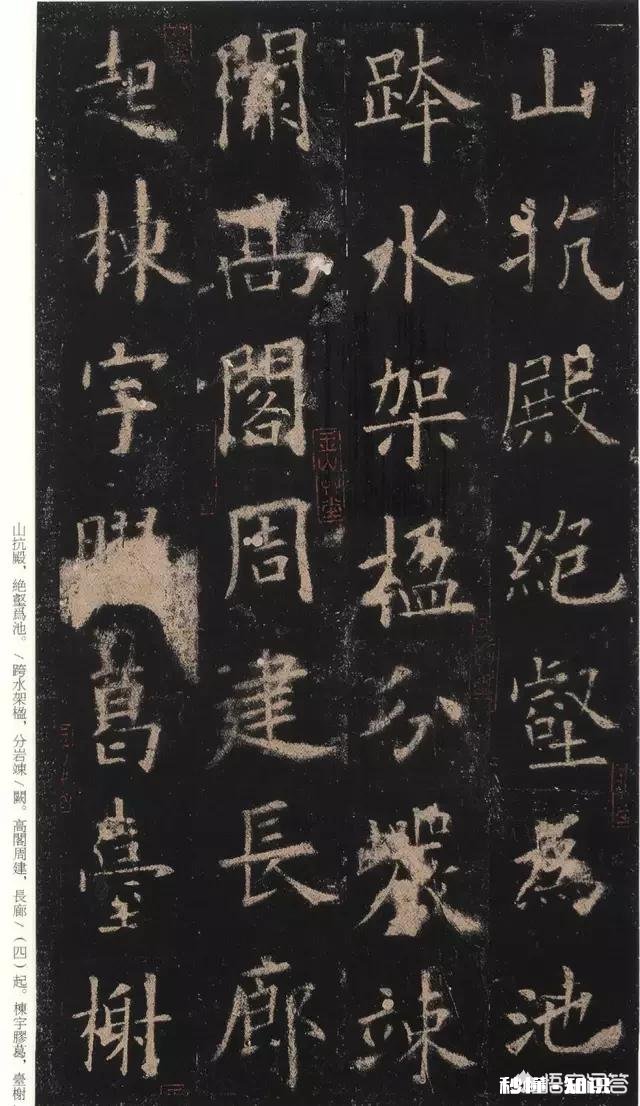 山抗殿絕壑為池
跨水架楹分巖竦
闕高閣周建長廊
起棟宇膠葛臺榭
山抗殿，絶壑爲池。/跨水架楹，分岩竦/闕。高閣周建，長廊/（四）起。棟宇膠葛，臺榭
悟空问答
秒懂·知识